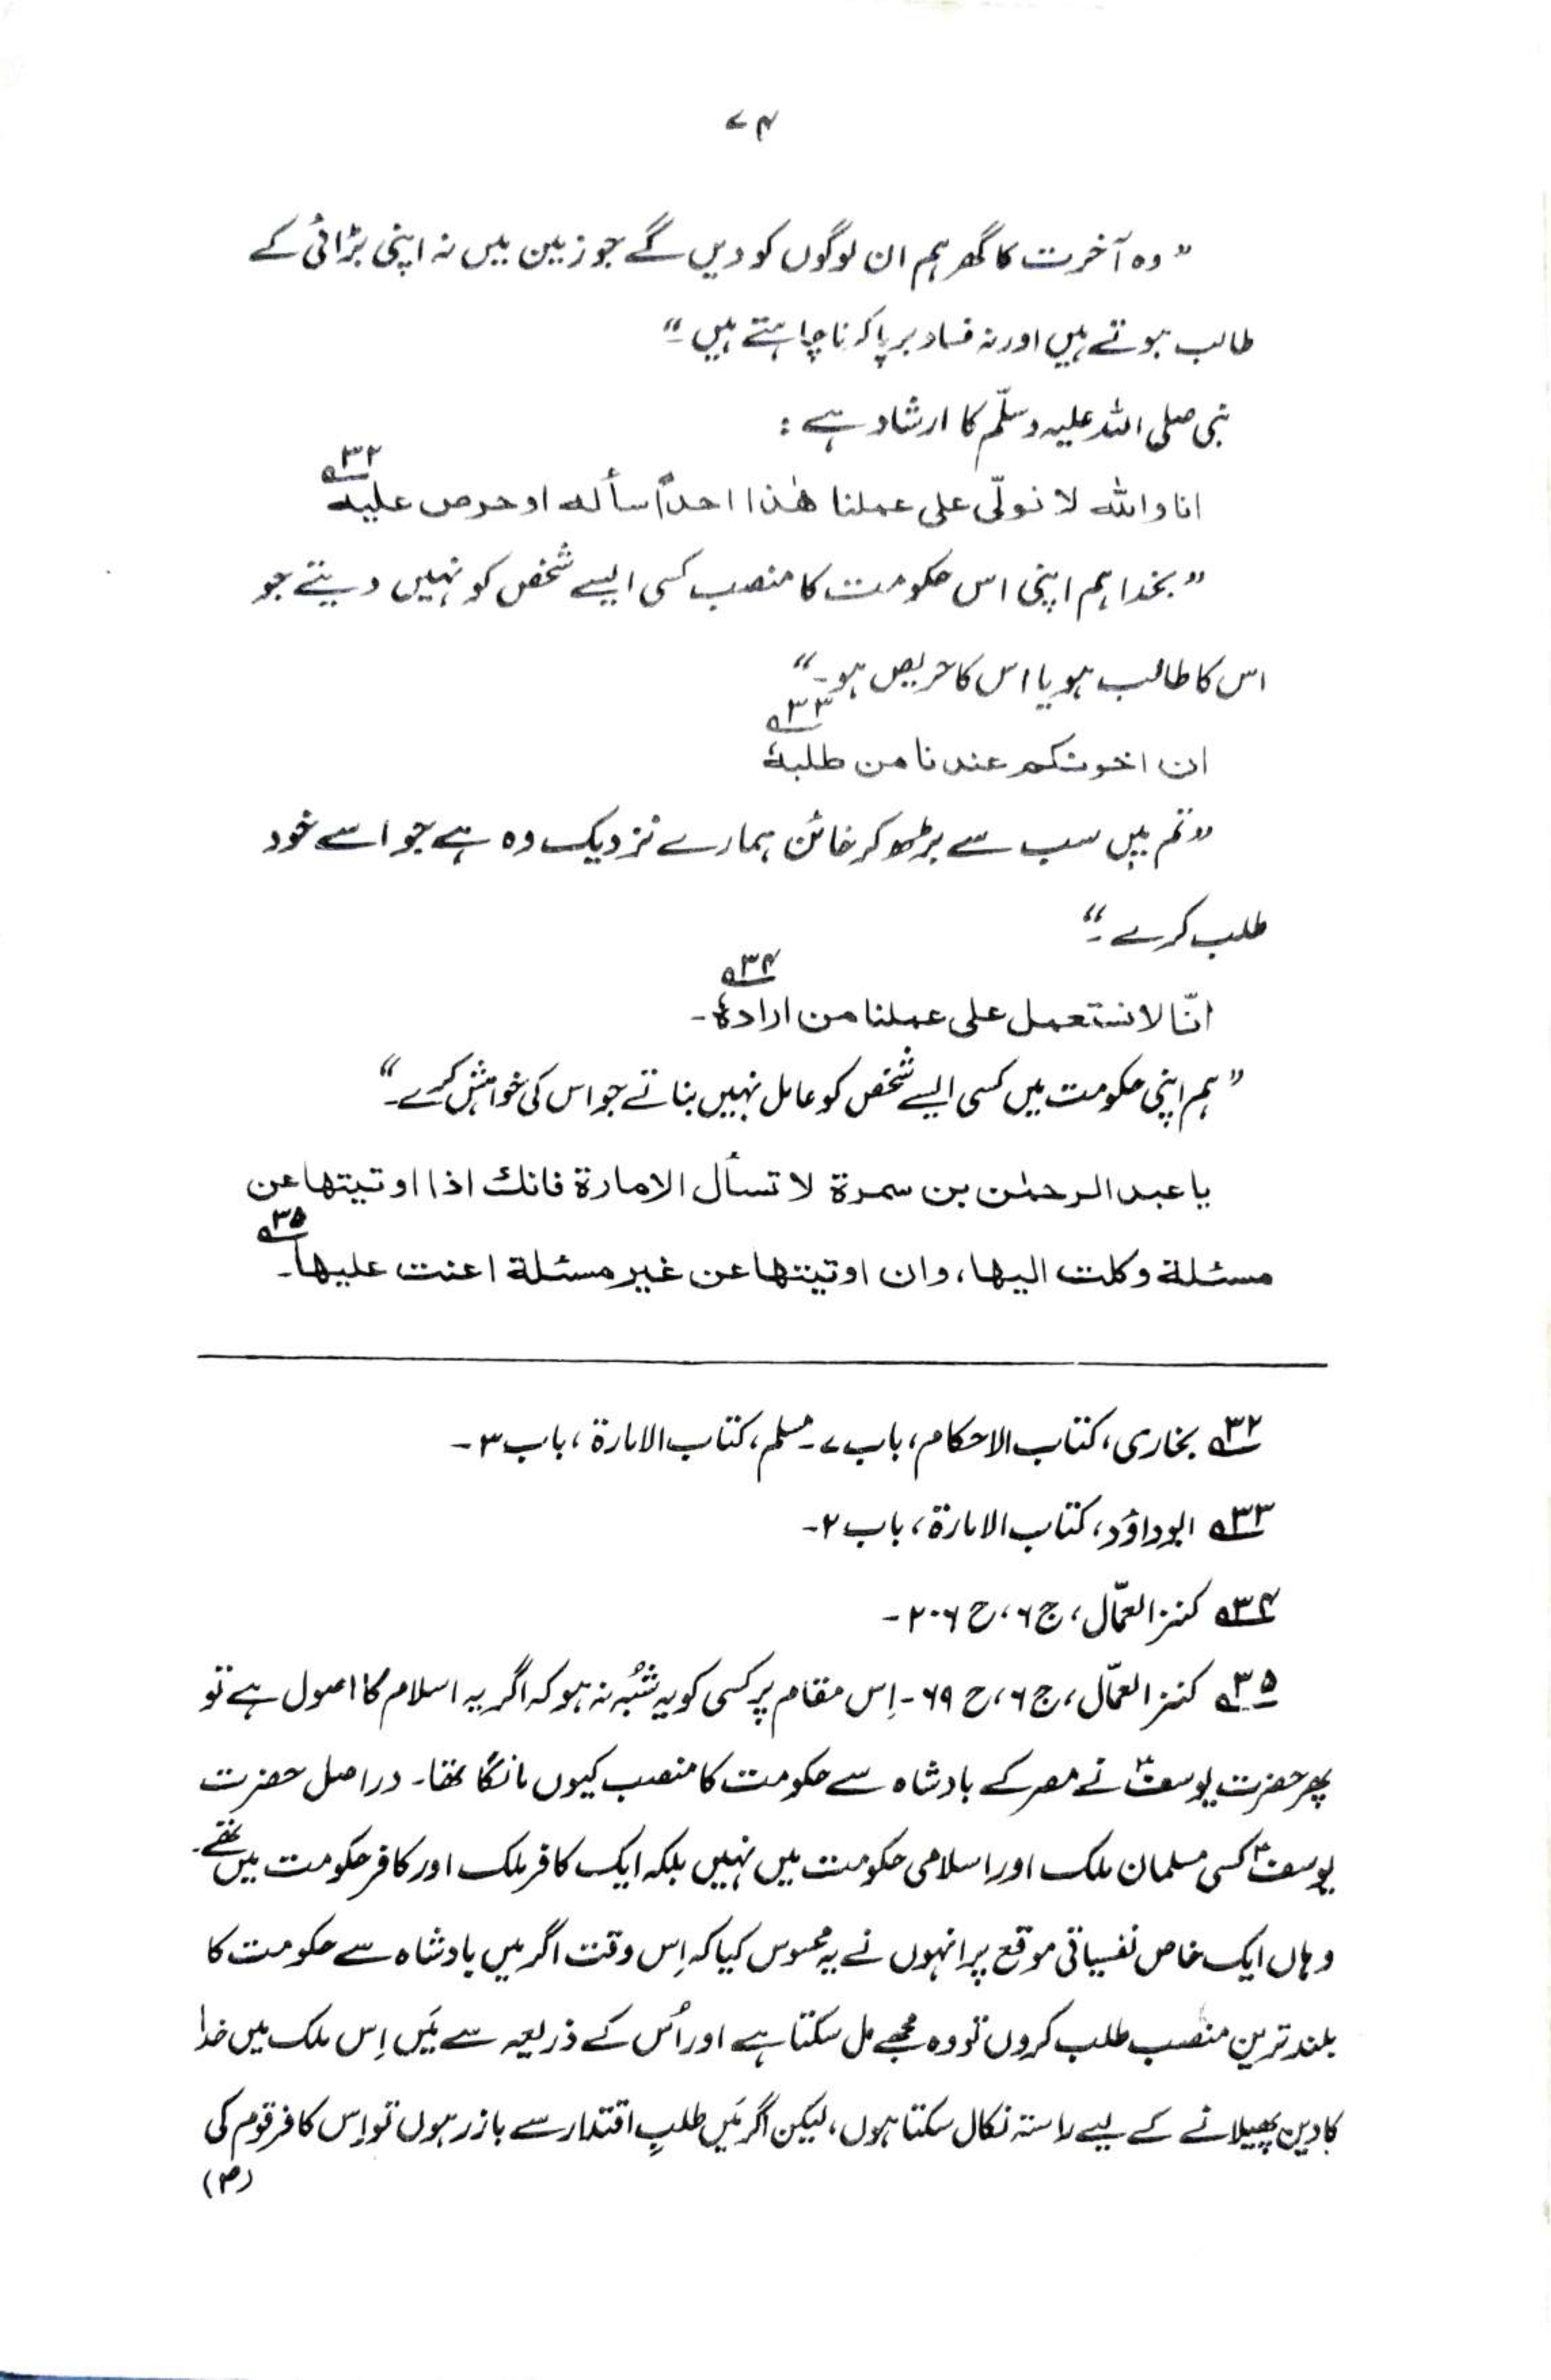 ۷۴
”وہ آخرت کا گھر ہم ان لوگوں کو دیں گے جو زمین میں نہ اپنی بڑائی کے
طالب ہوتے ہیں اور نہ فساد برپا کرنا چاہتے ہیں۔“
نبی صلی اللہ علیہ وسلّم کا ارشاد ہے :
انا واللہ لا نولّی علی عملنا ھٰذا احداً سألہ او حرص علیہ ۳۲؎
”بخدا ہم اپنی اس حکومت کا منصب کسی ایسے شخص کو نہیں دیتے جو
اس کا طالب ہو یا اس کا حریص ہو۔“
ان اخونکم عندنا من طلبہٗ ۳۳؎
”تم میں سب سے بڑھ کر خائن ہمارے نزدیک وہ ہے جو اسے خود
طلب کرے۔“
انّا لا نستعمل علی عملنا من ارادہٗ ۳۴؎۔
”ہم اپنی حکومت میں کسی ایسے شخص کو عامل نہیں بناتے جو اس کی خواہش کرے۔“
یا عبد الرحمٰن بن سمرۃ لا تسأل الامارۃ فانك اذا اوتیتھا عن
مسئلۃ وکلت الیھا، وان اوتیتھا عن غیر مسئلۃ اعنت علیھا ۳۵؎۔
۳۲؎ بخاری، کتاب الاحکام، باب ۷۔ مسلم، کتاب الامارۃ، باب ۳۔
۳۳؎ ابوداؤد، کتاب الامارۃ، باب ۲۔
۳۴؎ کنز العمّال، ج ۶، ح ۲۰۶۔
۳۵؎ کنز العمّال، ج ۶، ح ۶۹۔ اِس مقام پر کسی کو یہ شُبہ نہ ہو کہ اگر یہ اسلام کا اصول ہے تو
پھر حضرت یوسفؑ نے مصر کے بادشاہ سے حکومت کا منصب کیوں مانگا تھا۔ دراصل حضرت
یوسفؑ کسی مسلمان ملک اور اسلامی حکومت میں نہیں بلکہ ایک کافر ملک اور کافر حکومت میں تھے۔
وہاں ایک خاص نفسیاتی موقع پر انہوں نے یہ محسوس کیا کہ اِس وقت اگر میں بادشاہ سے حکومت کا
بلند ترین منصب طلب کروں تو وہ مجھے مل سکتا ہے اور اُس کے ذریعہ سے مَیں اِس ملک میں خدا
کا دین پھیلانے کے لیے راستہ نکال سکتا ہوں، لیکن اگر مَیں طلبِ اقتدار سے باز رہوں تو اِس کافر قوم کی